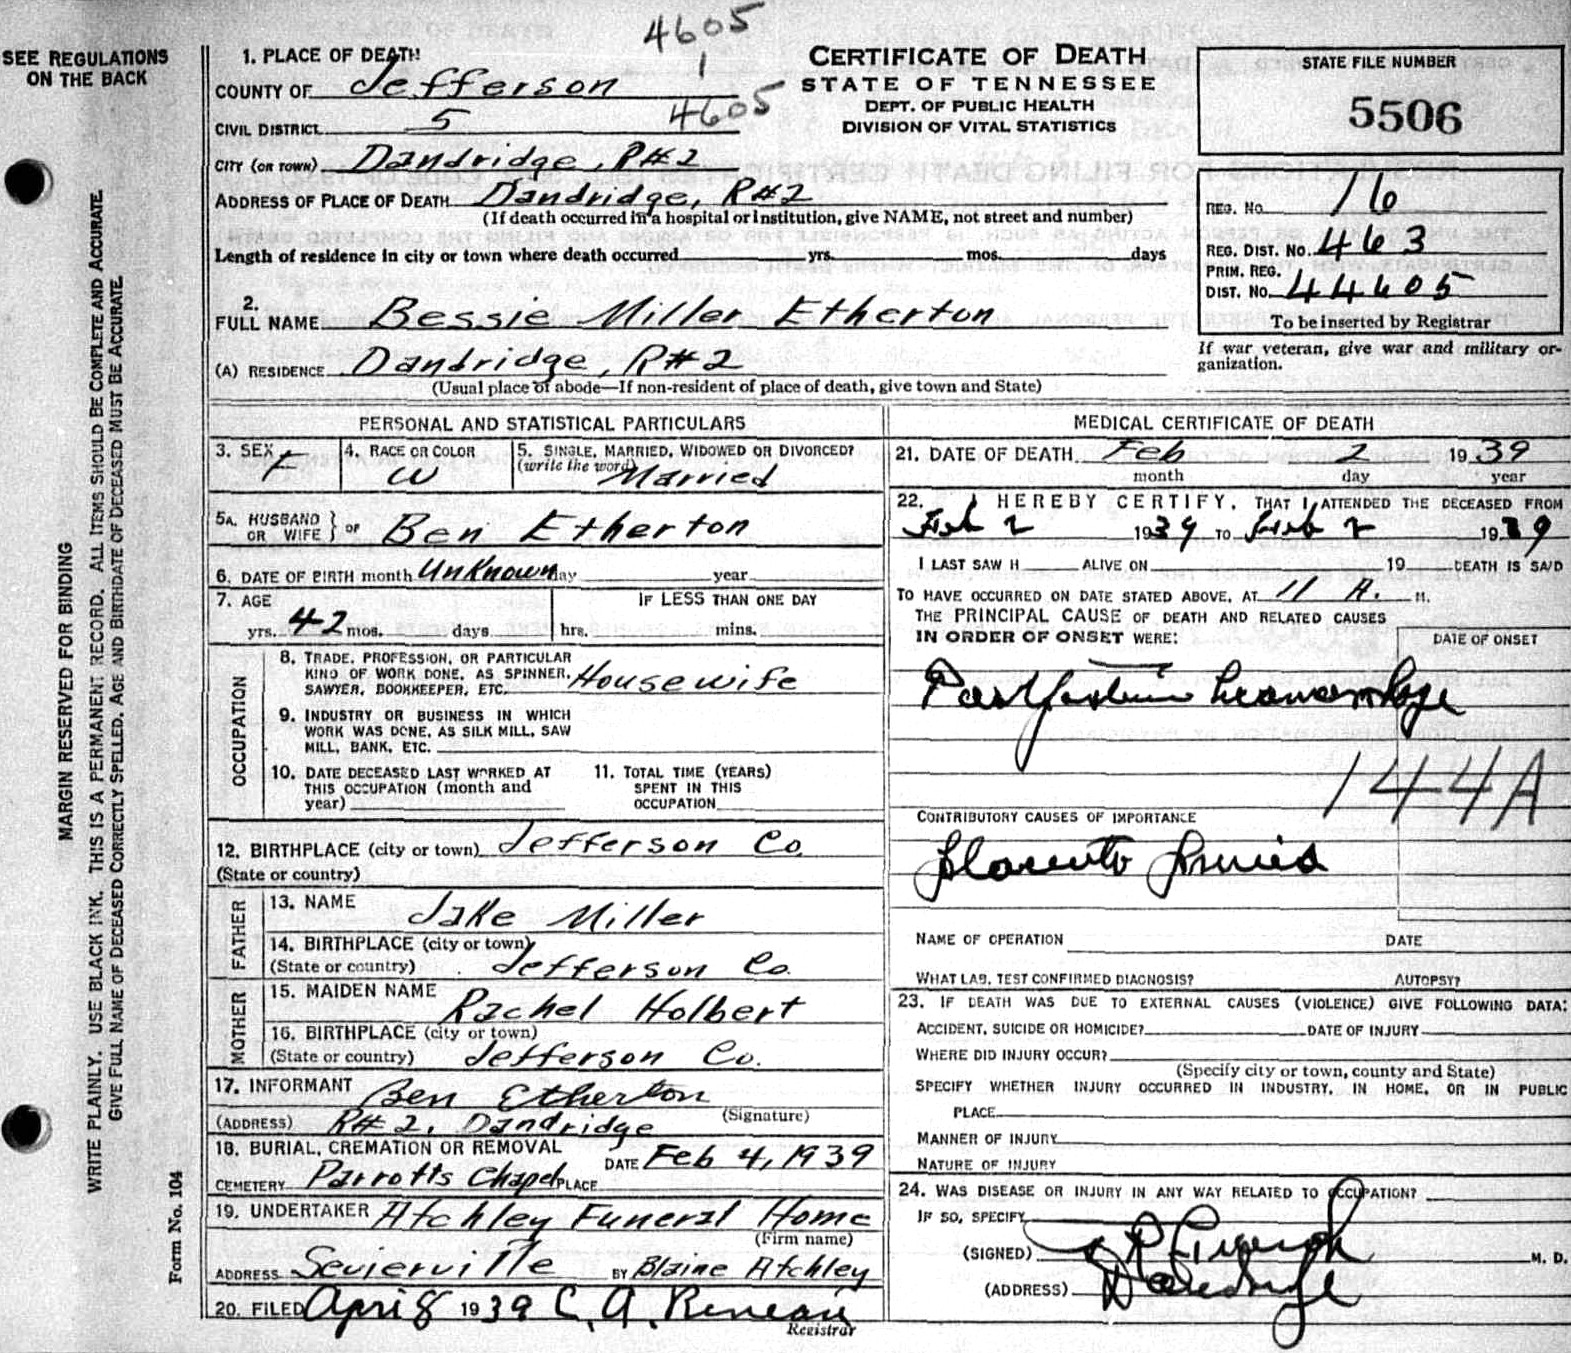 SEE REGULATIONS
ON THE BACK
MARGIN RESERVED FOR BINDING
WRITE PLAINLY. USE BLACK INK. THIS IS A PERMANENT RECORD. ALL ITEMS SHOULD BE COMPLETE AND ACCURATE.
GIVE FULL NAME OF DECEASED CORRECTLY SPELLED. AGE AND BIRTHDATE OF DECEASED MUST BE ACCURATE.
Form No. 104
4605
1
4605
1. PLACE OF DEATH
COUNTY OF Jefferson
CIVIL DISTRICT 5
CITY (OR TOWN) Dandridge, R#2
ADDRESS OF PLACE OF DEATH Dandridge, R#2
(If death occurred in a hospital or institution, give NAME, not street and number)
Length of residence in city or town where death occurred yrs. mos. days
CERTIFICATE OF DEATH
STATE OF TENNESSEE
DEPT. OF PUBLIC HEALTH
DIVISION OF VITAL STATISTICS
STATE FILE NUMBER
5506
REG. NO. 16
REG. DIST. NO. 463
PRIM. REG.
DIST. NO. 44605
To be inserted by Registrar
If war veteran, give war and military or-
ganization.
2.
FULL NAME Bessie Miller Etherton
(A) RESIDENCE Dandridge, R#2
(Usual place of abode—If non-resident of place of death, give town and State)
PERSONAL AND STATISTICAL PARTICULARS
3. SEX F
4. RACE OR COLOR W
5. SINGLE, MARRIED, WIDOWED OR DIVORCED?
(write the word) Married
5A. HUSBAND
OR WIFE } OF Ben Etherton
6. DATE OF BIRTH month Unknown day year
7. AGE
yrs. 42 mos. days
IF LESS THAN ONE DAY
hrs. mins.
OCCUPATION
8. TRADE, PROFESSION, OR PARTICULAR
KIND OF WORK DONE, AS SPINNER,
SAWYER, BOOKKEEPER, ETC. Housewife
9. INDUSTRY OR BUSINESS IN WHICH
WORK WAS DONE, AS SILK MILL, SAW
MILL, BANK, ETC.
10. DATE DECEASED LAST WORKED AT
THIS OCCUPATION (month and
year)
11. TOTAL TIME (YEARS)
SPENT IN THIS
OCCUPATION
12. BIRTHPLACE (city or town) Jefferson Co.
(State or country)
FATHER
13. NAME Jake Miller
14. BIRTHPLACE (city or town)
(State or country) Jefferson Co.
MOTHER
15. MAIDEN NAME Rachel Holbert
16. BIRTHPLACE (city or town)
(State or country) Jefferson Co.
17. INFORMANT Ben Etherton
(Signature)
(ADDRESS) R#2, Dandridge
18. BURIAL, CREMATION OR REMOVAL DATE Feb 4, 1939
CEMETERY Parrotts Chapel PLACE
19. UNDERTAKER Atchley Funeral Home
(Firm name)
ADDRESS Sevierville BY Blaine Atchley
20. FILED April 8 1939 C. A. Reneau
Registrar
MEDICAL CERTIFICATE OF DEATH
21. DATE OF DEATH Feb 2 1939
month day year
22. I HEREBY CERTIFY, THAT I ATTENDED THE DECEASED FROM
Feb 2 1939 TO Feb 2 1939
I LAST SAW H ALIVE ON 19 DEATH IS SAID
TO HAVE OCCURRED ON DATE STATED ABOVE, AT 11 A. M.
THE PRINCIPAL CAUSE OF DEATH AND RELATED CAUSES
IN ORDER OF ONSET WERE:
DATE OF ONSET
Hemorrhage
144A
CONTRIBUTORY CAUSES OF IMPORTANCE
NAME OF OPERATION DATE
WHAT LAB. TEST CONFIRMED DIAGNOSIS? AUTOPSY?
23. IF DEATH WAS DUE TO EXTERNAL CAUSES (VIOLENCE) GIVE FOLLOWING DATA:
ACCIDENT, SUICIDE OR HOMICIDE? DATE OF INJURY
WHERE DID INJURY OCCUR?
(Specify city or town, county and State)
SPECIFY WHETHER INJURY OCCURRED IN INDUSTRY, IN HOME, OR IN PUBLIC
PLACE
MANNER OF INJURY
NATURE OF INJURY
24. WAS DISEASE OR INJURY IN ANY WAY RELATED TO OCCUPATION?
IF SO, SPECIFY
(SIGNED) M. D.
(ADDRESS) Dandridge